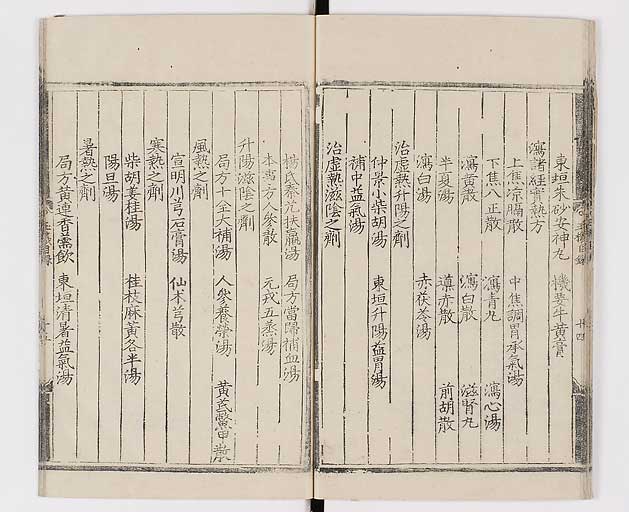 東垣朱砂安神丸 機要牛黃膏
瀉諸經實熱方
上焦凉膈散 中焦調胃承氣湯
下焦八正散 瀉青丸 瀉心湯
瀉黃散 瀉白散 滋腎丸
半夏湯 導赤散 前胡散
瀉白湯 赤茯苓湯
治虛熱升陽之劑
仲景小柴胡湯 東垣升陽益胃湯
補中益氣湯
治虛熱滋陰之劑
楊氏秦艽扶羸湯 局方當歸補血湯
本事方人參散 元戎五蒸湯
升陽滋陰之劑
局方十全大補湯 人參養榮湯 黃芪鱉甲散
風熱之劑
宣明川芎石膏湯 仙术芎散
寒熱之劑
柴胡姜桂湯 桂枝麻黃各半湯
陽旦湯
暑熱之劑
局方黃連香薷飲 東垣清暑益氣湯